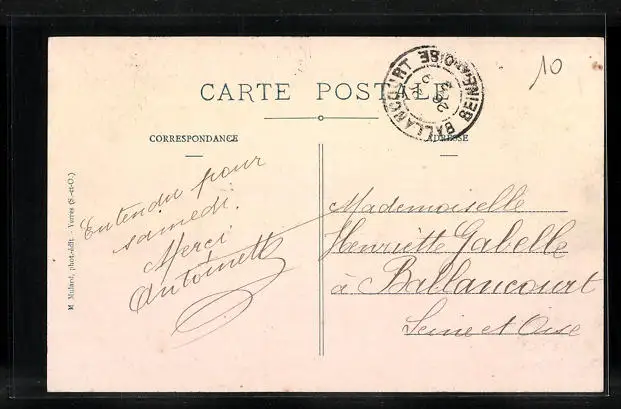 10
CARTE POSTALE
BALLANCOURT
SEINE-ET-OISE
CORRESPONDANCE
ADRESSE
Entendu pour
samedi.
Merci
Antoinette
Mademoiselle
Henriette Gabelle
à Ballancourt
Seine et Oise
M. Mulard, phot.-édit. - Yerres (S.-et-O.)